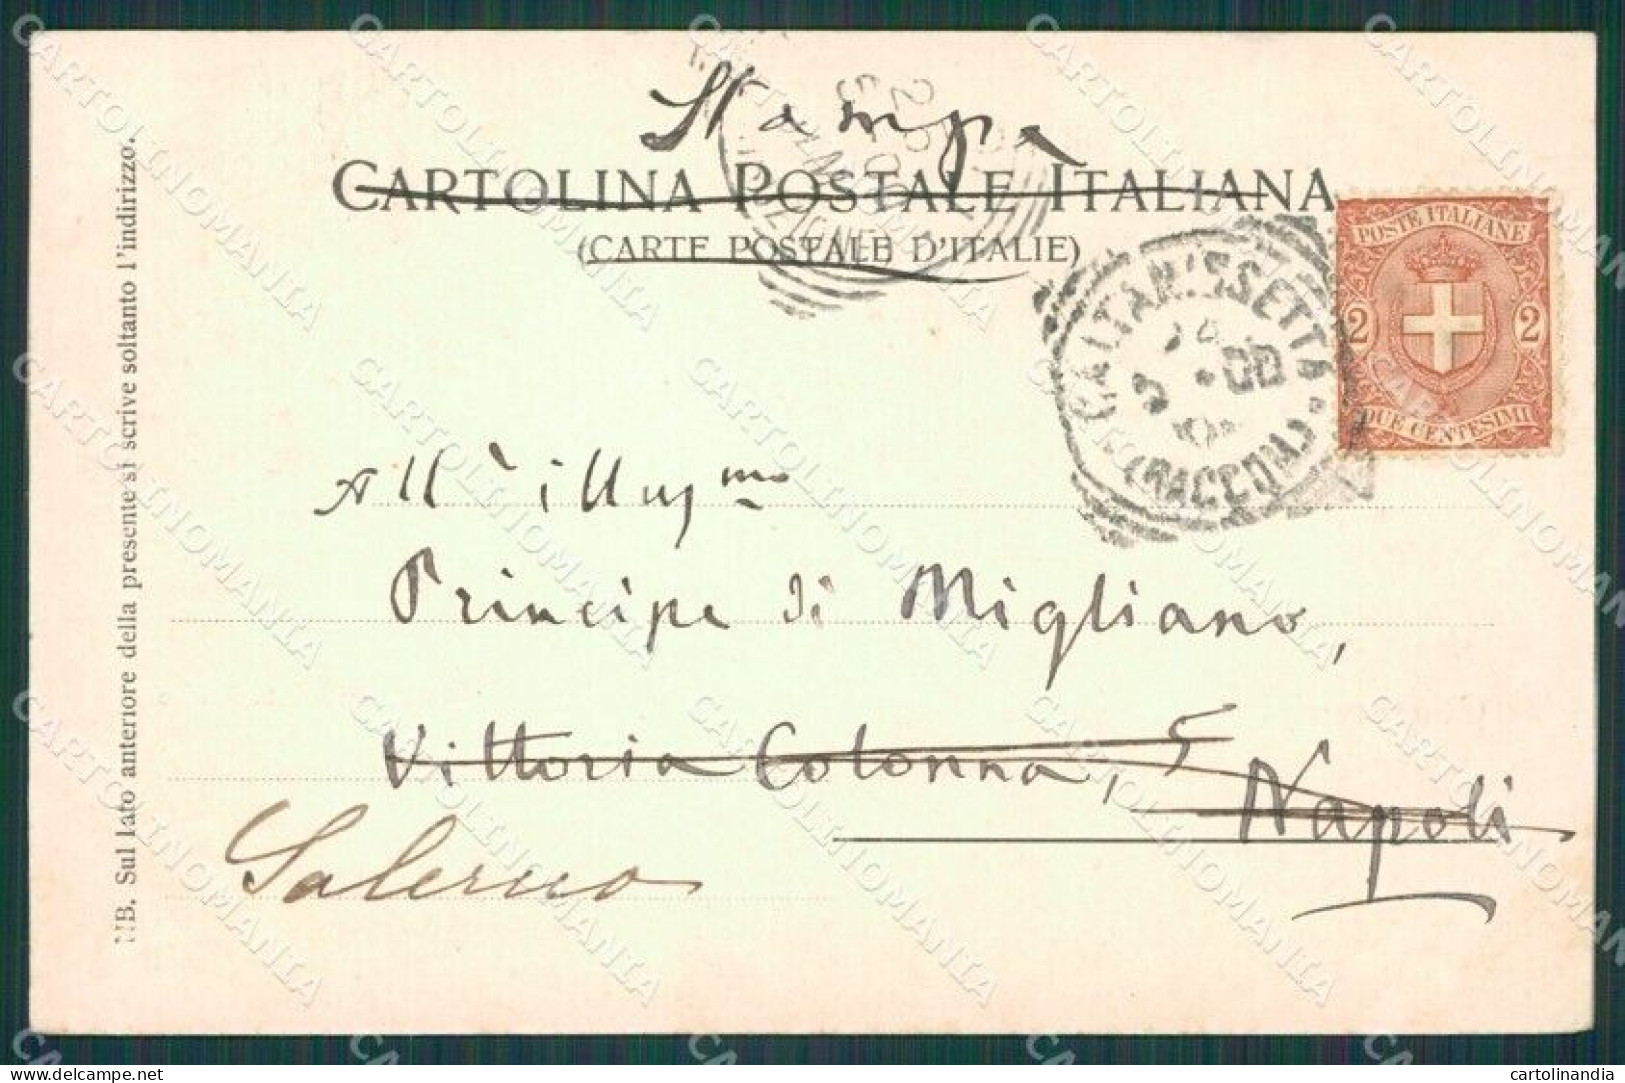 Stampe
CARTOLINA POSTALE ITALIANA
(CARTE POSTALE D'ITALIE)
POSTE ITALIANE
2 2
DUE CENTESIMI
CALTANISSETTA
(RACCOM.)
All'illmo
Principe di Migliano,
Vittoria Colonna, 5
Napoli
Salerno
NB. Sul lato anteriore della presente si scrive soltanto l'indirizzo.
CARTOLINOMANIA
delcampe.net
cartolinandia